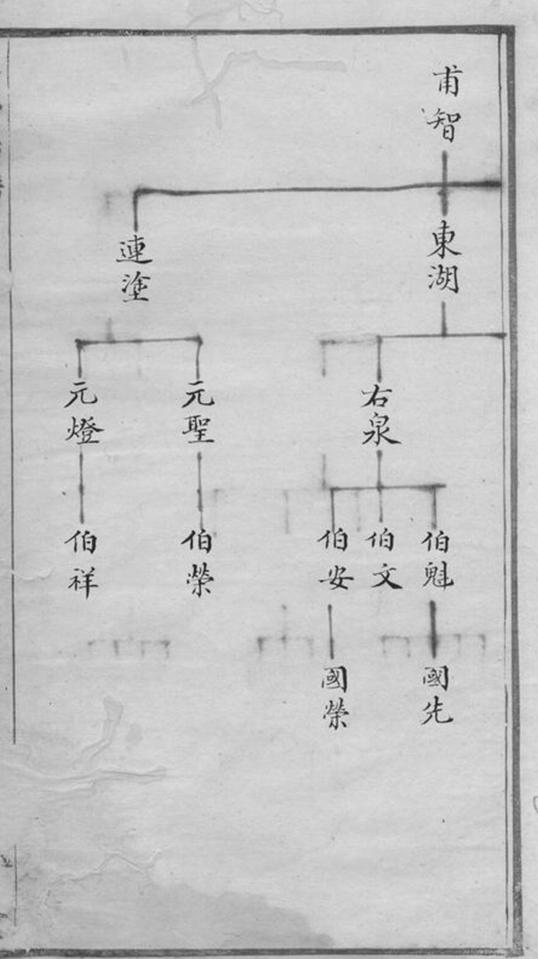 甫智
東湖
連塗
右泉
元聖
元燈
伯魁
伯文
伯安
伯榮
伯祥
國先
國榮